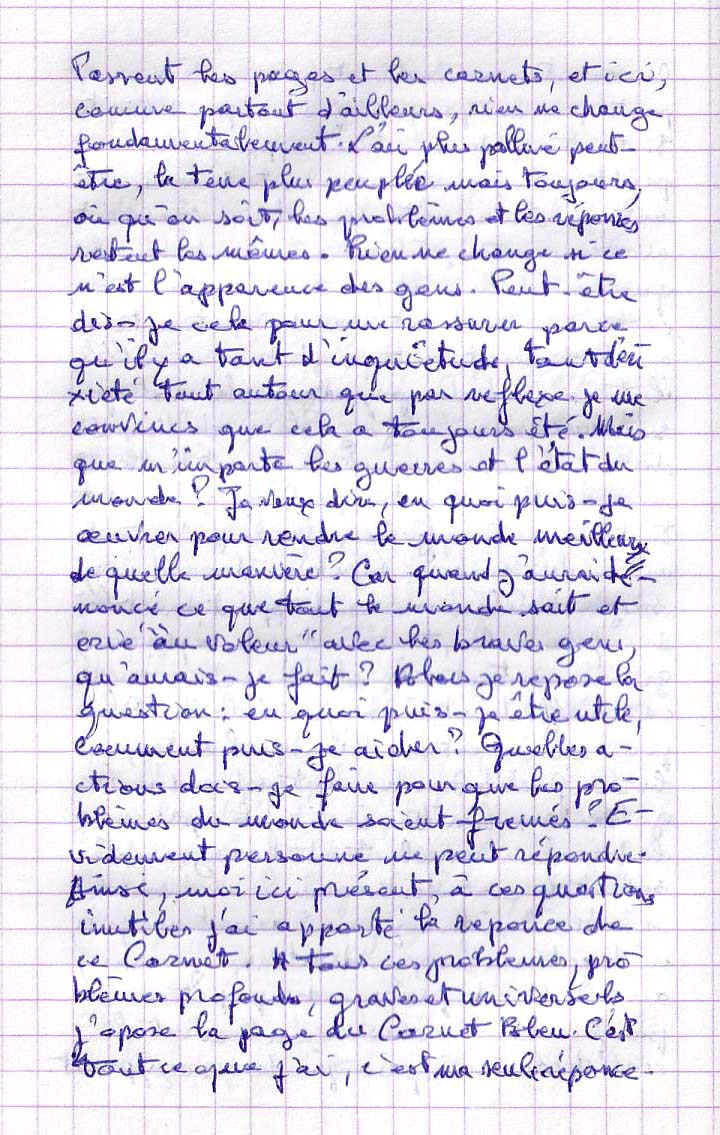 Passent les pages et les carnets, et ici,
comme partout d'ailleurs, rien ne change
fondamentalement. L'air plus pollué peut-
être, la terre plus peuplée mais toujours,
où qu'on soit, les problèmes et les réponses
restent les mêmes. Rien ne change si ce
n'est l'apparence des gens. Peut-être
dis-je cela pour me rassurer parce
qu'il y a tant d'inquiétude, tant
tout autour que par reflexe je me
convincs que cela a toujours été. Mais
que m'importe les guerres et l'état du
monde? Je veux dire, en quoi puis-je
œuvrer pour rendre le monde meilleur
de quelle manière? Car quand j'aurai dé-
noncé ce que tout le monde sait et
crié "au voleur" avec les braves gens,
qu'aurais-je fait? Alors je repose la
question: en quoi puis-je être utile,
comment puis-je aider? Quelles a-
ctions dois-je faire pour que les pro-
blèmes du monde soient ? E-
videmment personne ne peut répondre.
Ainsi, moi ici présent, à ces questions
inutiles j'ai apporté la reponce de
ce Carnet. A tous ces problemes, pro
blèmes profonds, graves et universels
j'opose la page du Carnet Bleu. C'est
tout ce que j'ai, c'est ma seule réponce.